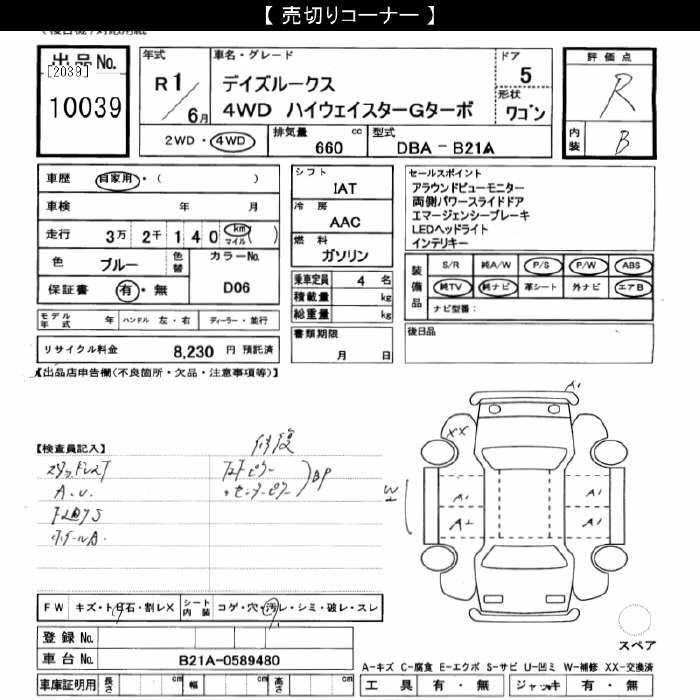 【 売切りコーナー 】
出品No.
[2039]
10039
年式
R1/6月
車名・グレード
デイズルークス
4WD ハイウェイスターGターボ
ドア
5
形状
ワゴン
評価点
R
内装
B
2WD・4WD
排気量
660
cc
型式
DBA－B21A
車歴
自家用・( )
車検 年 月
走行 3万 2千 1 4 0 km マイル ( )
色 ブルー
色替
カラーNo.
D06
保証書 有・無
シフト
IAT
冷房
AAC
燃料
ガソリン
乗車定員 4 名
積載量 kg
総重量 kg
セールスポイント
アラウンドビューモニター
両側パワースライドドア
エマージェンシーブレーキ
LEDヘッドライト
インテリキー
装備品
S/R 純A/W P/S P/W ABS
純TV 純ナビ 革シート 外ナビ エアB
ナビ型番：
モデル年式 年
ハンドル 左・右
ディーラー・並行
リサイクル料金 8,230 円 預託済
書類期限
月 日
後日品
【出品店申告欄(不良箇所・欠品・注意事項等)】
【検査員記入】
修復
A.U.
BP
A1
XX
W
A1
A1
A2
A1
FW キズ・ト石・割レX
シート内装 コゲ・穴・汚レ・シミ・破レ・スレ
登録No.
車台No. B21A-0589480
車庫証明用 長さ cm 幅 cm 高さ cm
スペア
A－キズ C－腐食 E－エクボ S－サビ U－凹ミ W－補修 XX－交換済
工具 有・無 ジャッキ 有・無